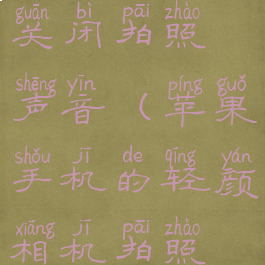 guān bì pāi zhào
关闭拍照
shēng yīn píng guǒ
声音(苹果
shǒu jī de qīng yán
手机的轻颜
xiāng jī pāi zhào
相机拍照